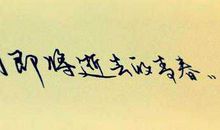 即将逝去的青春